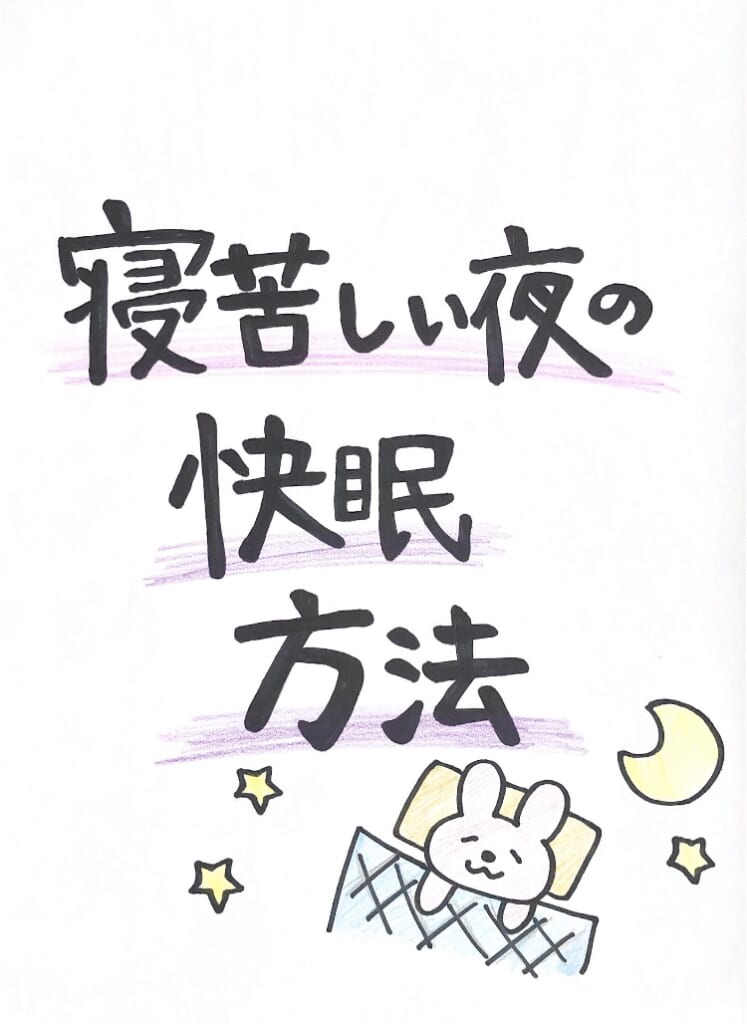 寝苦しい夜の
快眠
方法